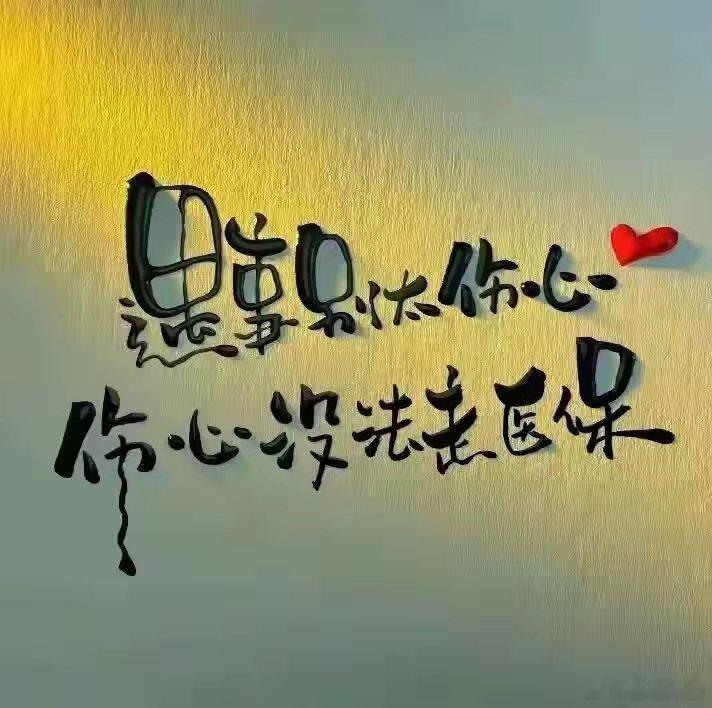 遇事别太伤心
伤心没法走医保